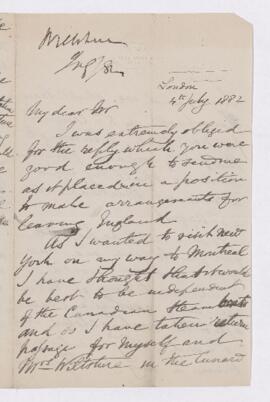 Wiltshire
London
4th July 1882
My dear Sir
I was extremely obliged
for the reply which you were
good enough to send me
as it placed me in a position
to make arrangements for
leaving England
As I wanted to visit New
York on my way to Montreal
I have thought that it would
be best to be independent
of the Canadian Steam boats
and so I have taken return
passage for myself and
Mrs Wiltshire in the Cunard